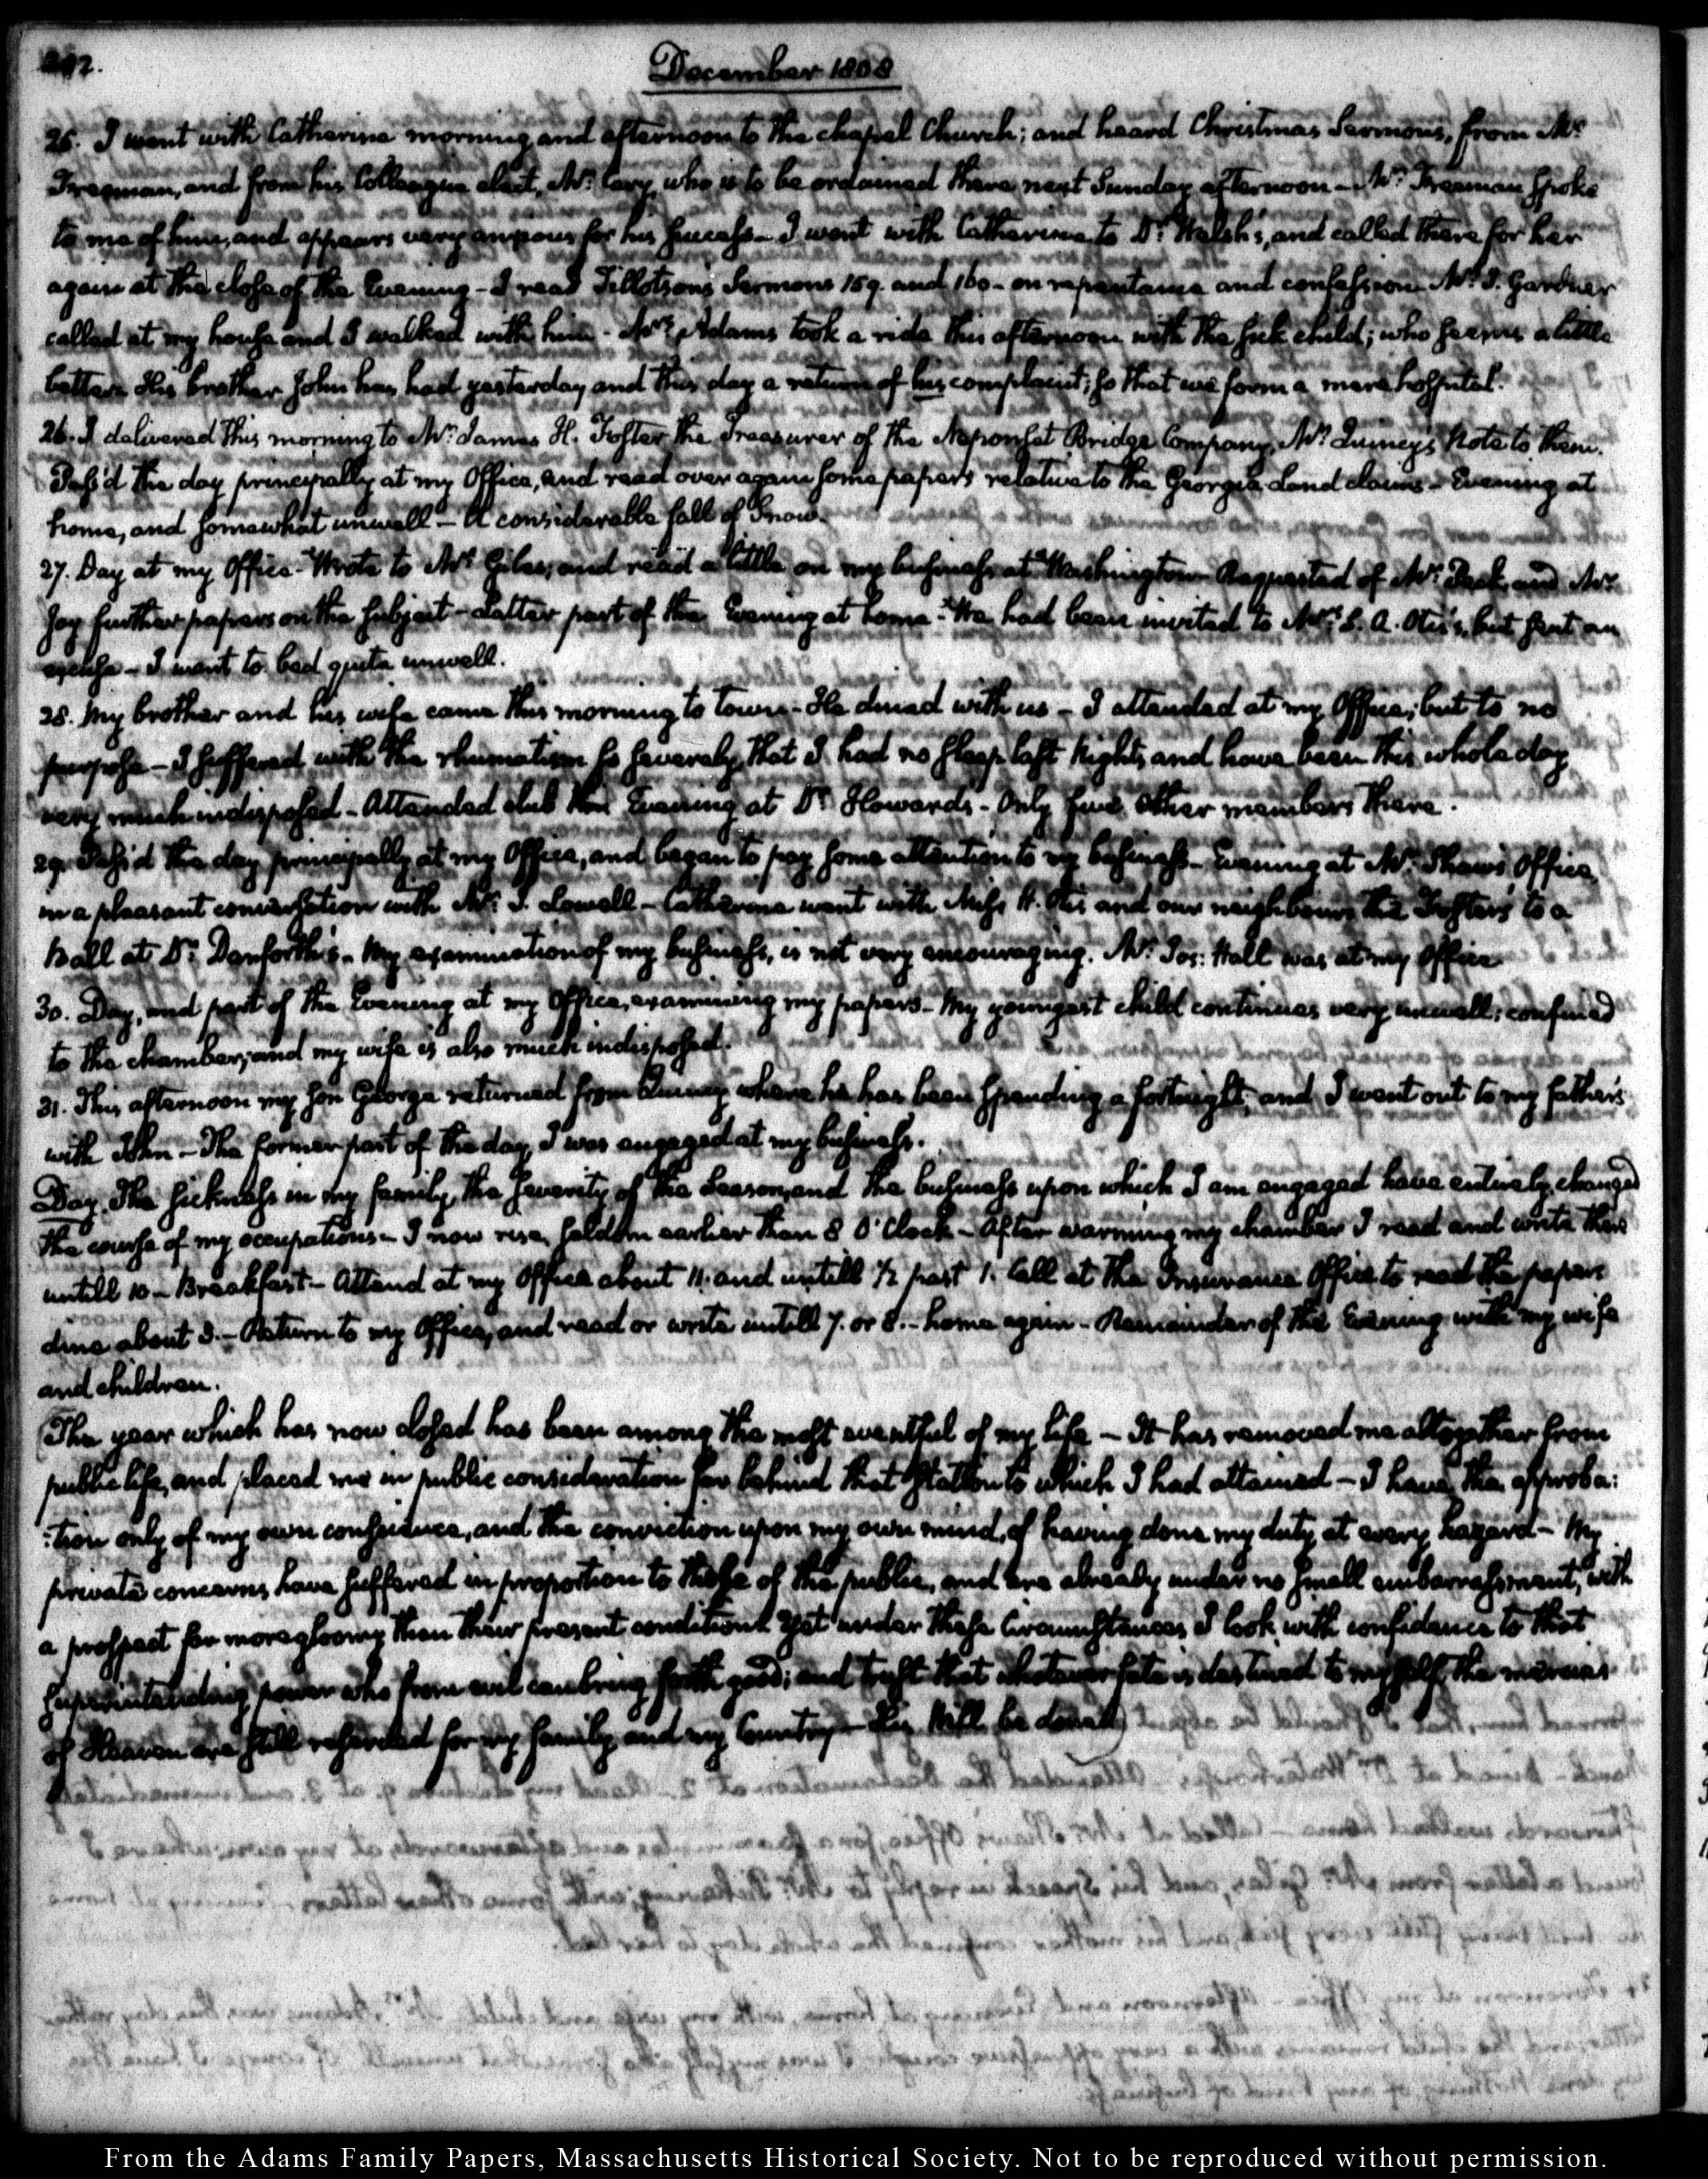 December 1808
25. I went with Catherine morning and afternoon to the chapel Church; and heard Christmas Sermons, from Mr.
Freeman, and from his Colleague elect, Mr. Cary, who is to be ordained there next Sunday afternoon — Mr. Freeman spoke
to me of him, and appears very anxious for his success — I went with Catherine to Dr. Welsh's, and called there for her
again at the close of the Evening — I read Tillotson's Sermons 159. and 160 — on repentance and confession. Mr. J. Gardner
called at my house and I walked with him — Mrs. Adams took a ride this afternoon with the sick child; who seems a little
better. His brother John has had yesterday and this day a return of his complaint; so that we form a mere hospital.
26. I delivered this morning to Mr. James H. Foster the Treasurer of the Neponset Bridge Company, Mr. Quincy's Note to them.
Pass'd the day principally at my Office, and read over again some papers relative to the Georgia Land claims — Evening at
home, and somewhat unwell — A considerable fall of Snow.
27. Day at my Office — Wrote to Mr. Giles; and read a little on my business at Washington — Requested of Mr. Peck and Mr.
Joy further papers on the subject — Latter part of the Evening at home — We had been invited to Mrs. S. A. Otis's, but sent an
excuse — I went to bed quite unwell.
28. My brother and his wife came this morning to town — He dined with us — I attended at my Office; but to no
purpose — I suffered with the rhumatism so severely, that I had no sleep last Night, and have been this whole day
very much indisposed — Attended club this Evening at Dr. Howards — Only five other members there.
29. Pass'd the day principally at my Office, and began to pay some attention to my business — Evening at Mr. Shaw's Office,
in a pleasant conversation with Mr. J. Lowell — Catherine went with Miss H. Otis and our neighbours the Fosters, to a
Ball at Dr. Danforth's — My examination of my business, is not very encouraging. Mr. Jos: Hall was at my Office
30. Day, and part of the Evening at my Office, examining my papers — My youngest child continues very unwell; confined
to the chamber; and my wife is also much indisposed.
31. This afternoon my son George returned from Quincy where he has been spending a fortnight; and I went out to my father's
with John — The former part of the day I was engaged at my business.
Day. The sickness in my family, the severity of the Season, and the business upon which I am engaged have entirely changed
the course of my occupations — I now rise, seldom earlier than 8 O'Clock — After warming my chamber I read and write there
untill 10 — Breakfast — Attend at my Office about 11. and untill ½ past 1. Call at the Insurance Office to read the papers
dine about 3. — Return to my Office, and read or write untill 7. or 8. — home again — Remainder of the Evening with my wife
and children.
The year which has now closed has been among the most eventful of my life — It has removed me altogether from
public life, and placed me in public consideration far behind that station to which I had attained — I have the approba:
:tion only of my own conscience, and the conviction upon my own mind, of having done my duty at every hazard — My
private concerns have suffered in proportion to those of the public, and are already under no small embarrassment, with
a prospect far more gloomy than their present condition. Yet under these Circumstances I look with confidence to that
superintending power who from evil can bring forth good; and trust that whatever fate is destined to myself, the mercies
of Heaven are still reserved for my family and my Country — His Will be done.
From the Adams Family Papers, Massachusetts Historical Society. Not to be reproduced without permission.